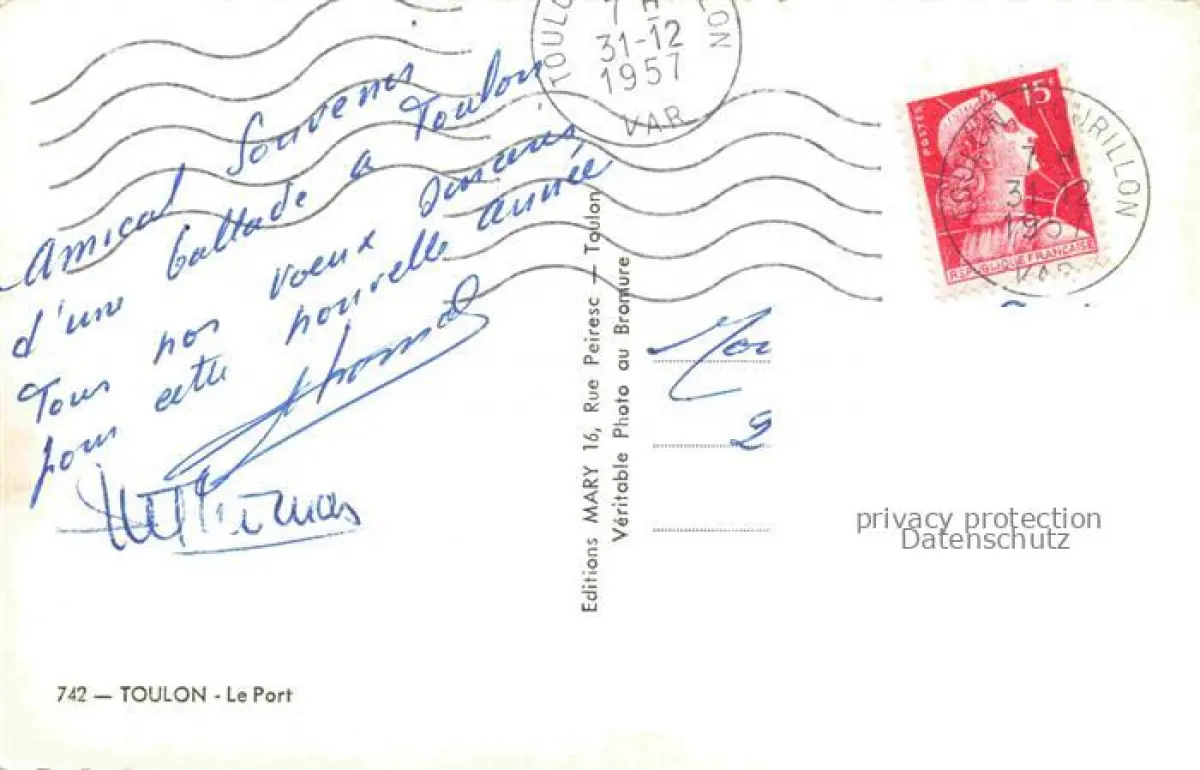 Amical Souvenir
d'une ballade a Toulon
Tous nos voeux sincères
pour cette nouvelle année
Thomas
742 — TOULON - Le Port
Editions MARY 16, Rue Peiresc — Toulon
Véritable Photo au Bromure
TOULO
7 H
31-12
1957
VAR
15F
POSTES
REPUBLIQUE FRANÇAISE
7 H
31-12
1957
VAR
2
privacy protection
Datenschutz